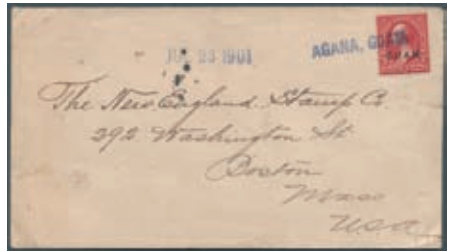 23 1901
AGANA, GUAM
GUAM
The New England Stamp Co.
292 Washington St
Boston
Mass
USA